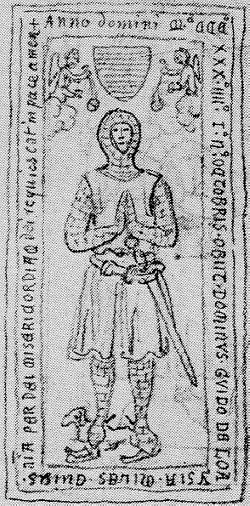 + Anno domini Mº CCCº
XXX·IIIIº I·Nº OCTOBRIS·OBIIT·DOMINUS·GVIDO DE LOA
YSIA·MILES CUIUS
AIA PER DEI MISERICORDIA requiescat in pace amen